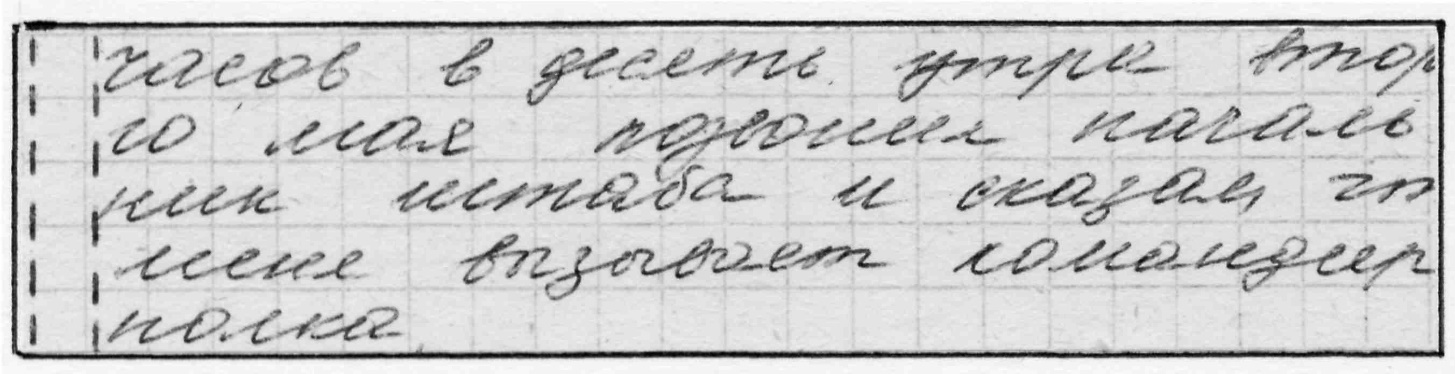 часов в десять утра втор
го мая позвонил началь
ник штаба и сказал, чт
меня вызывает командир
полка